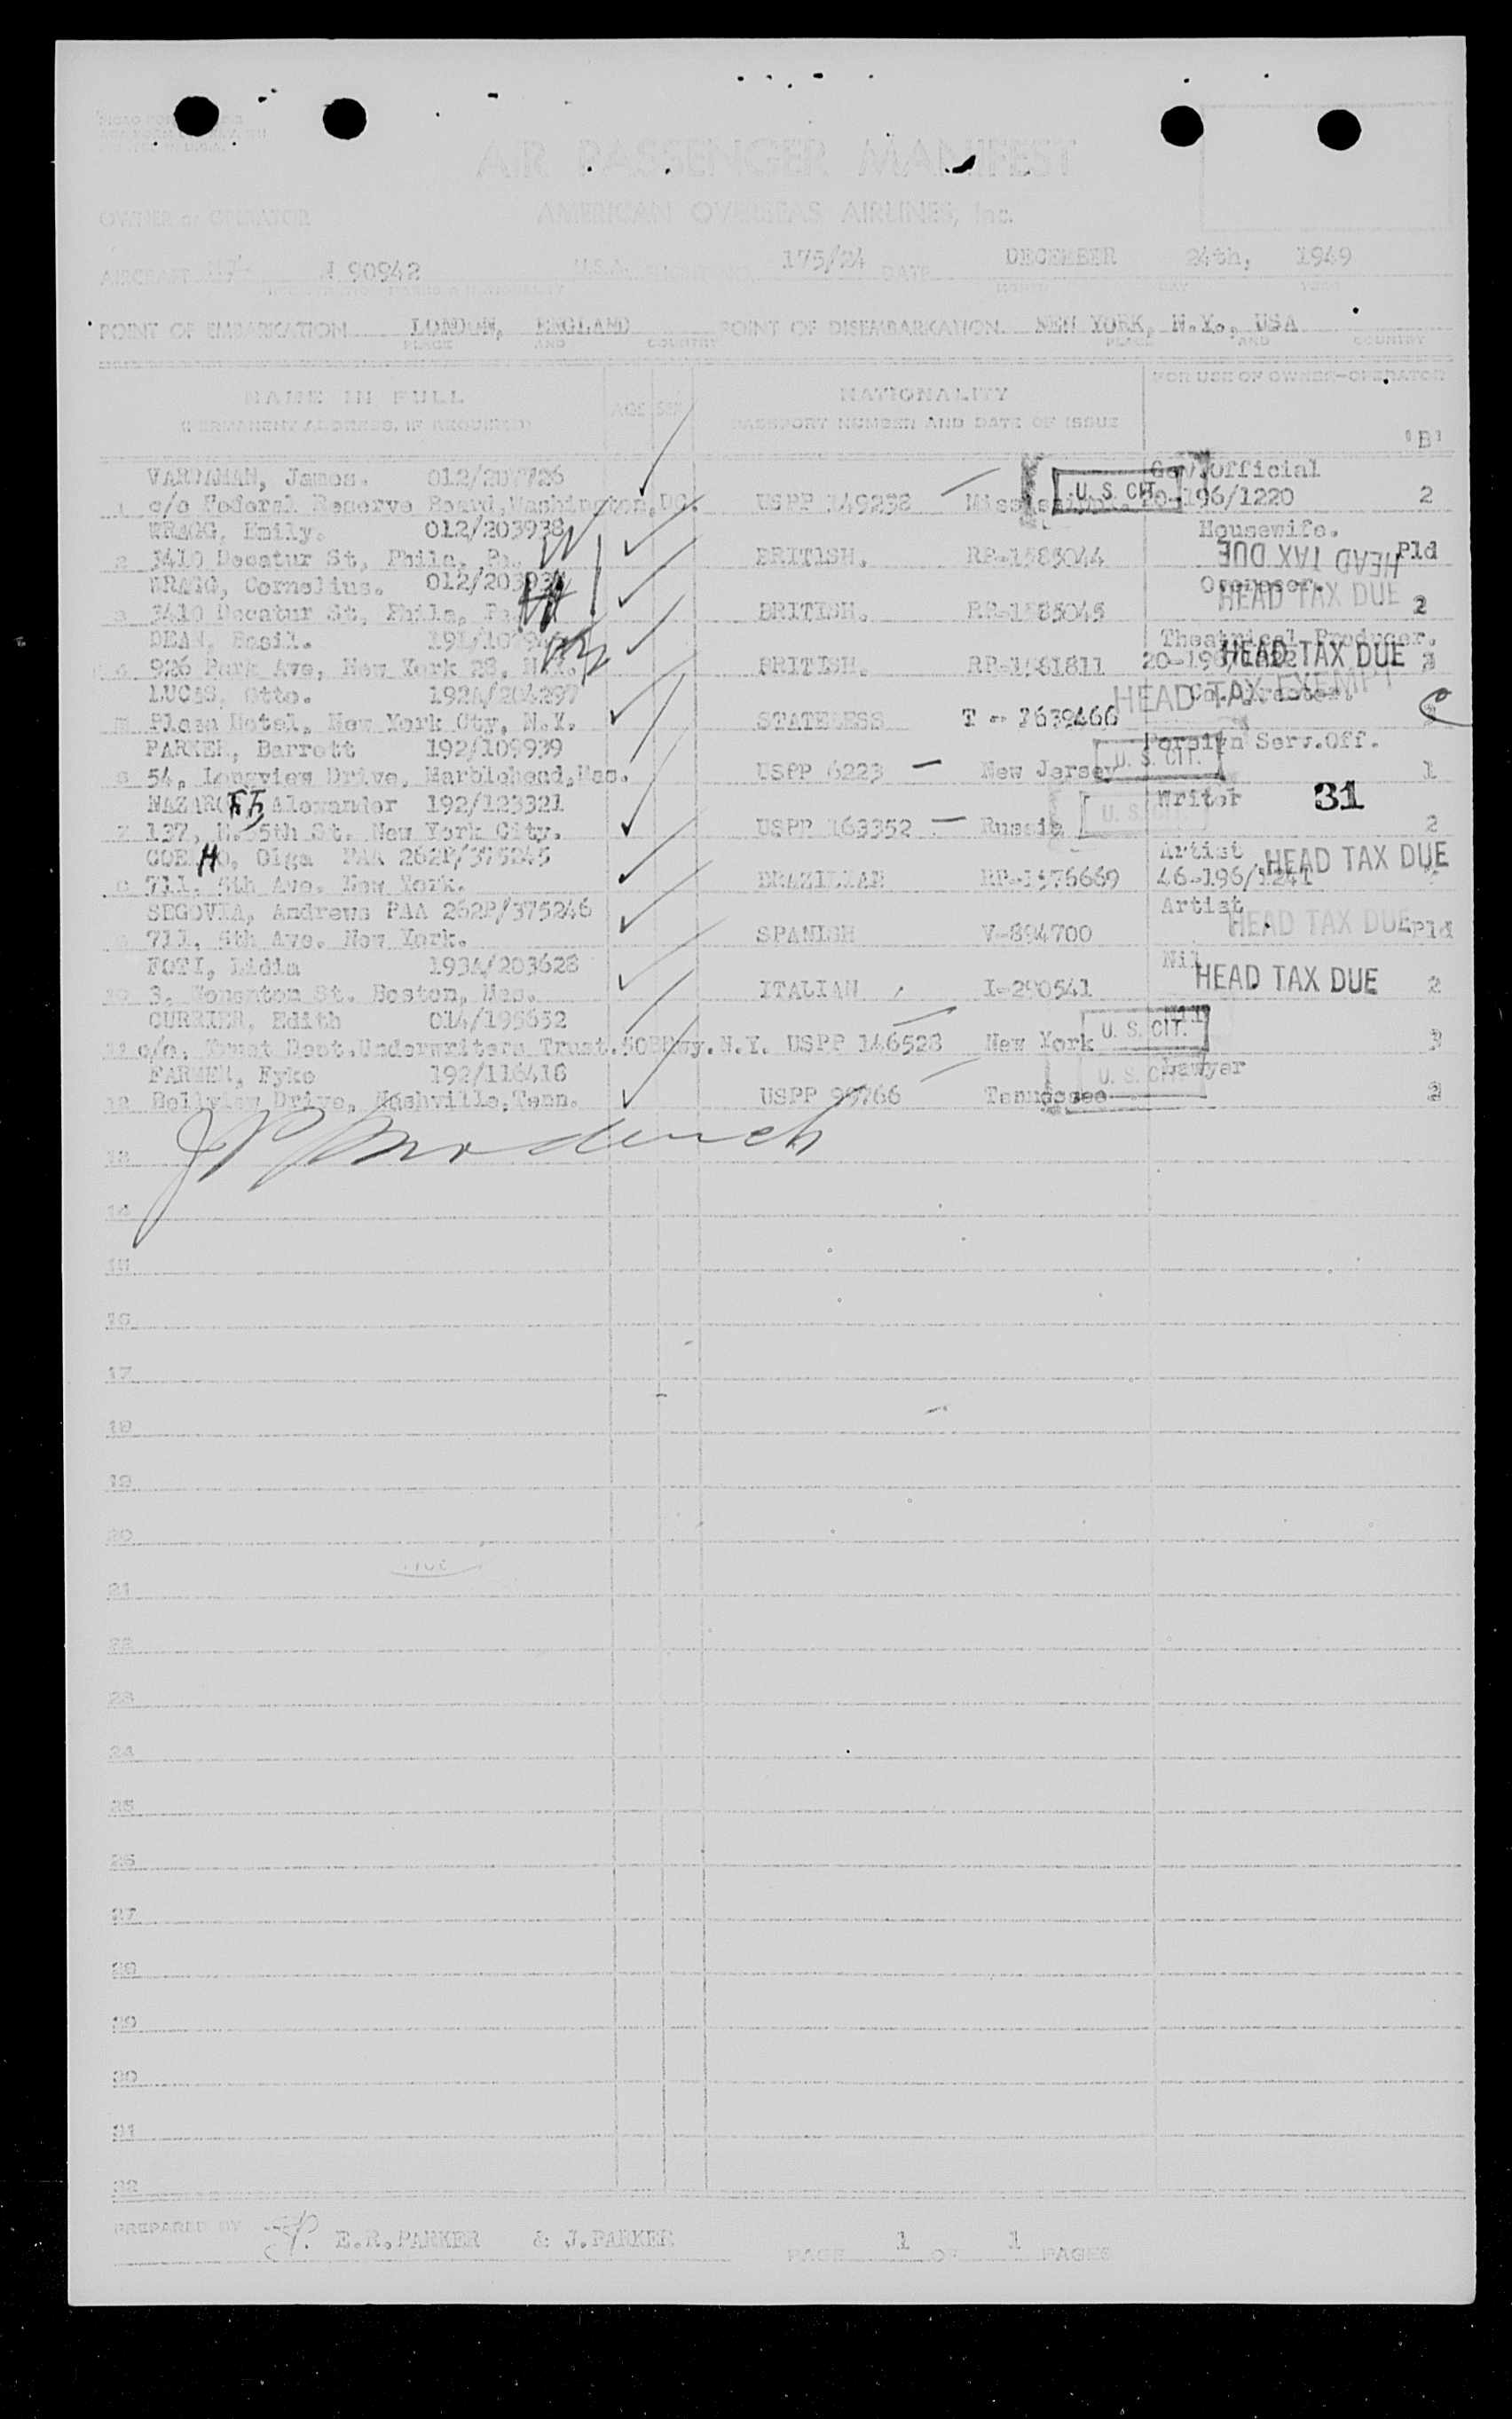 AIR PASSENGER MANIFEST
OWNER or OPERATOR AMERICAN OVERSEAS AIRLINES, Inc.
AIRCRAFT N 90942 U.S.A. FLIGHT NO. 175/24 DATE DECEMBER 24th, 1949
MONTH DAY YEAR
POINT OF EMBARKATION LONDON, ENGLAND POINT OF DISEMBARKATION NEW YORK, N.Y., USA
PLACE AND COUNTRY PLACE AND COUNTRY
NAME IN FULL AGE SEX NATIONALITY FOR USE OF OWNER-OPERATOR
(PERMANENT ADDRESS, IF REQUIRED) PASSPORT NUMBER AND DATE OF ISSUE
'B'
VARDAMAN, James. Gov/Official
1 c/o Federal Reserve Board, Washington, DC. USPP 149238 U. S. CIT. 2
WRAGG, Emily. 012/203938 Housewife.
2 3410 Decatur St, Phila, Pa. BRITISH. RP-1585044 HEAD TAX DUE Pld
WRAGG, Cornelius.
3 3410 Decatur St, Phila, Pa. BRITISH. RP-1585045 HEAD TAX DUE 2
DEAN, Basil. Theatrical Producer.
4 926 Park Ave, New York 28, N.Y. BRITISH. RP-1581811 HEAD TAX DUE
LUCAS, Otto. 192A/204297 Co. Director.
5 Plaza Hotel, New York Cty, N.Y. STATELESS HEAD TAX EXEMPT
PARKER, Barrett 192/109939 Foreign Serv.Off.
6 54, Longview Drive, Marblehead, Mas. USPP 6223 — New Jersey U. S. CIT. 1
NAZAROFF, Alexander 192/123321 Writer 31
7 137, 35th St. New York City. USPP 163352 — Russia U. S. CIT. 2
COELHO, Olga PAA 262P/375245 Artist HEAD TAX DUE
8 711, 5th Ave. New York. BRAZILIAN RP-1576669 46-196/1241
SEGOVIA, Andrews PAA 262P/375246 Artist
9 711, 5th Ave. New York. SPANISH V-894700 HEAD TAX DUE Pld
FOTI, Lidia 193A/203628 Nil
10 3, St. Boston, Mas. ITALIAN I-290541 HEAD TAX DUE 2
CURRIER, Edith 014/195652 Nil
11 c/o. Trust Dept. Underwriters Trust. 50 N.Y. USPP 146528 New York U. S. CIT.
FARMER, Fyke 192/116418 Lawyer
12 Bellview Drive, Nashville, Tenn. USPP 99766 Tennessee U. S. CIT. 2
13
14
15
16
17
18
19
20
21
22
23
24
25
26
27
28
29
30
31
32
PREPARED BY E.R.PARKER & J.PARKER PAGE 1 OF 1 PAGES